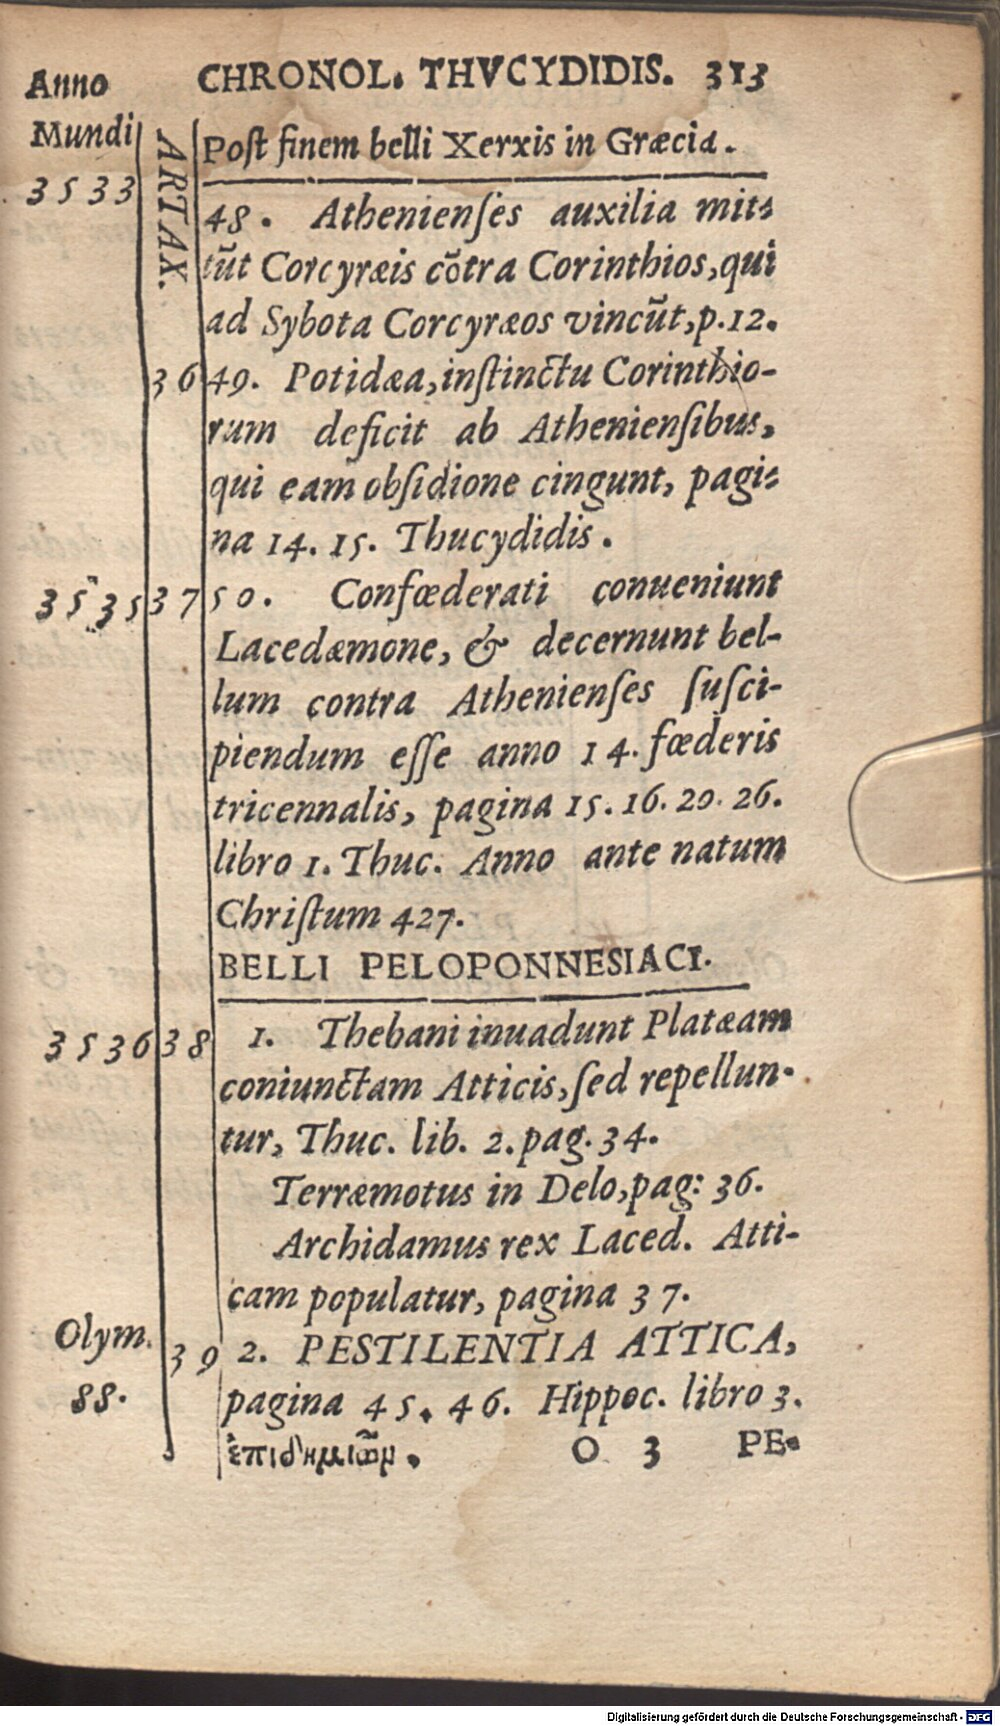 Anno CHRONOL. THVCYDIDIS. 313
Mundi ARTAX. Poſt finem belli Xerxis in Græcia.
3533 48. Athenienſes auxilia mit⸗
tũt Corcyræis cõtra Corinthios, qui
ad Sybota Corcyræos vincũt, p. 12.
36 49. Potidæa, inſtinctu Corinthio-
rum deficit ab Athenienſibus,
qui eam obſidione cingunt, pagi⸗
na 14. 15. Thucydidis.
3535 37 50. Confœderati conueniunt
Lacedæmone, & decernunt bel-
lum contra Athenienſes ſuſci-
piendum eſſe anno 14. fœderis
tricennalis, pagina 15. 16. 20. 26.
libro 1. Thuc. Anno ante natum
Chriſtum 427.
BELLI PELOPONNESIACI.
3536 38 1. Thebani inuadunt Platæam
coniunctam Atticis, ſed repellun-
tur, Thuc. lib. 2. pag. 34.
Terræmotus in Delo, pag: 36.
Archidamus rex Laced. Atti-
cam populatur, pagina 37.
Olym. 39 2. PESTILENTIA ATTICA,
88. pagina 45. 46. Hippoc. libro 3.
ἐπιδημιῶμ. O 3 PE-
Digitalisierung gefördert durch die Deutsche Forschungsgemeinschaft - DFG